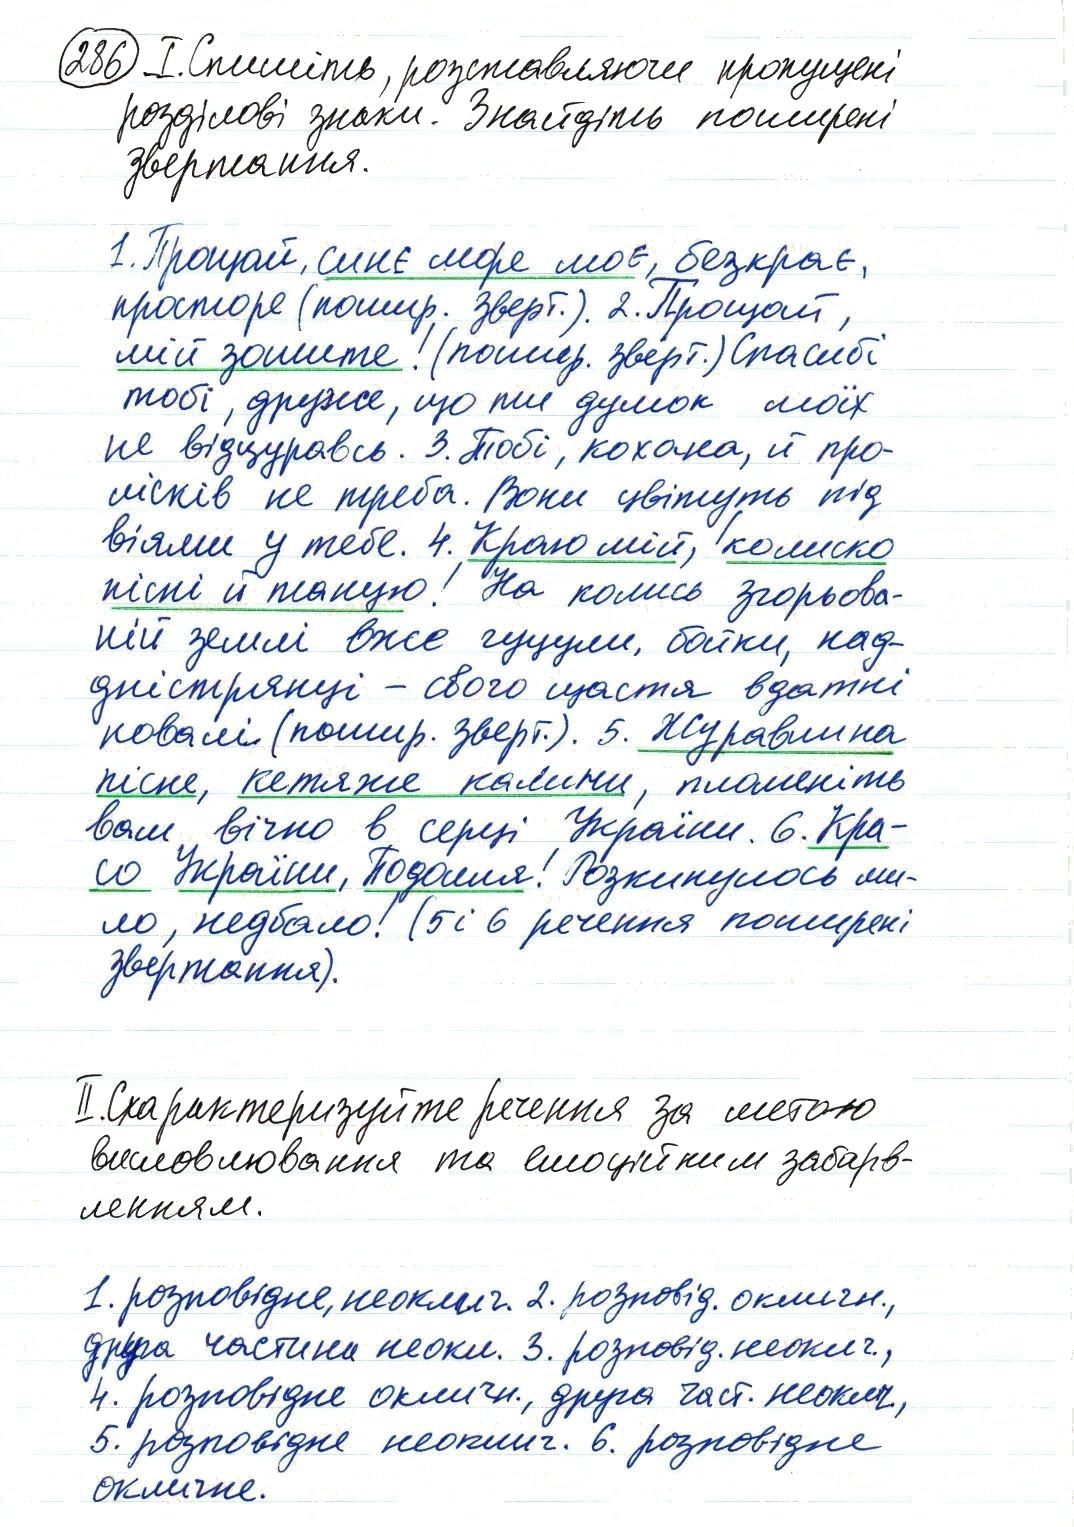 286 I. Спишіть, розставляючи пропущені
розділові знаки. Знайдіть поширені
звертання.
1. Прощай, синє море моє, безкрає,
просторе (пошир. зверт.). 2. Прощай,
мій зошите! (пошир. зверт.) Спасибі
тобі, друже, що ти думок моїх
не відцуравсь. 3. Тобі, кохана, й про-
лісків не треба. Вони цвітуть під
віями у тебе. 4. Краю мій, колиско
пісні й танцю! На колись згорьова-
ній землі вже гуцули, бойки, над-
дністрянці – свого щастя вдатні
ковалі. (пошир. зверт.). 5. Журавлина
пісне, кетяже калини, пломеніть
вам вічно в серці України. 6. Кра-
со України, Подолля! Розкинулось ми-
ло, недбало! (5 і 6 речення поширені
звертання).
II. Схарактеризуйте речення за метою
висловлювання та емоційним забарв-
ленням.
1. розповідне, неоклич. 2. розповід. окличн.,
друга частина неокл. 3. розповід. неоклч.,
4. розповідне окличн., друга част. неоклч.,
5. розповідне неоклич. 6. розповідне
окличне.